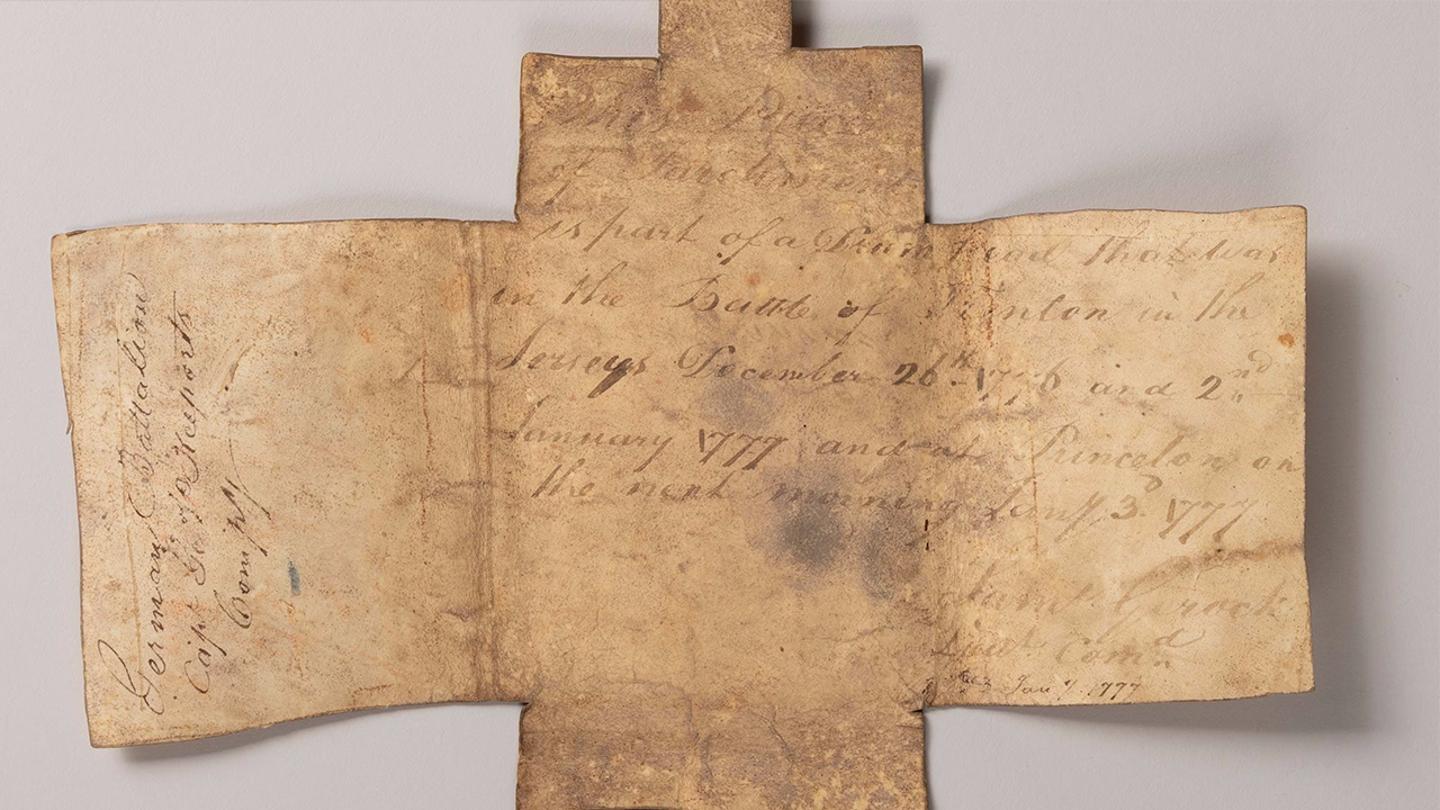 This Piece
of Parchment
is part of a Drum head that was
in the Battle of Trenton in the
Jerseys December 26th 1776 and 2nd
January 1777 and at Princeton on
the next morning Jany 3d 1777
Saml Gerock
Lieut Comd
Jan 7. 1777
German Battalion
Cap Geo
Compy